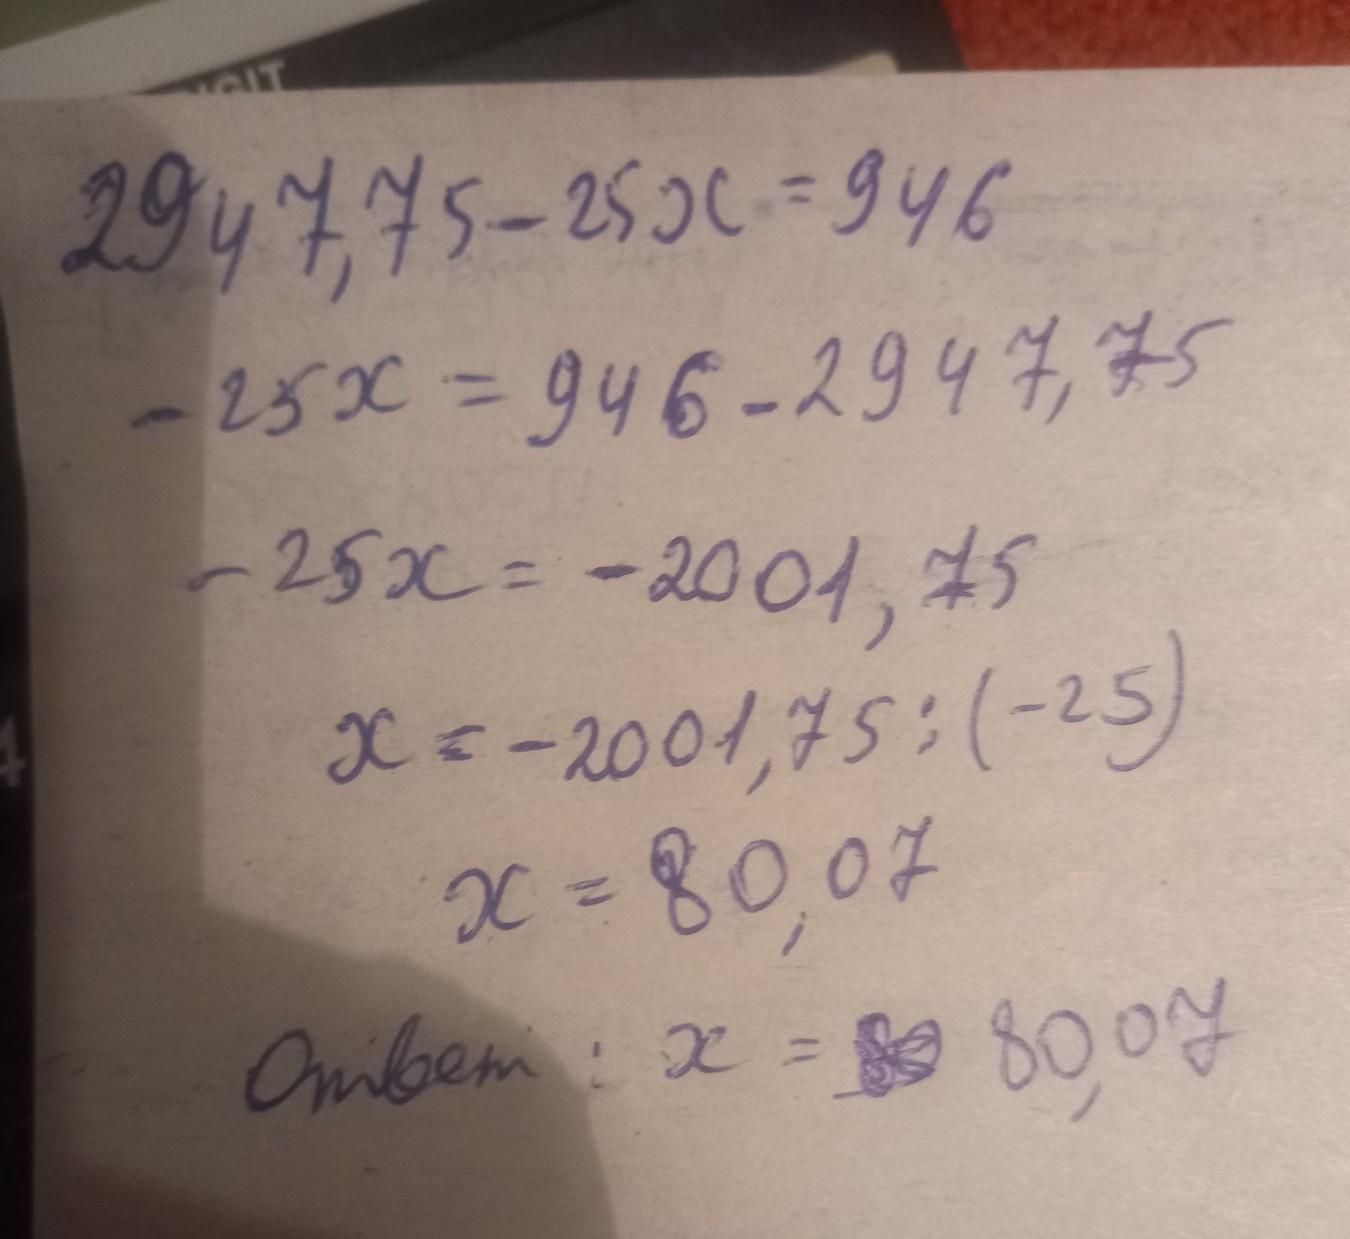 2947,75-25x=946
-25x=946-2947,75
-25x=-2001,75
x=-2001,75:(-25)
x=80,07
Ответ: x= 80,07